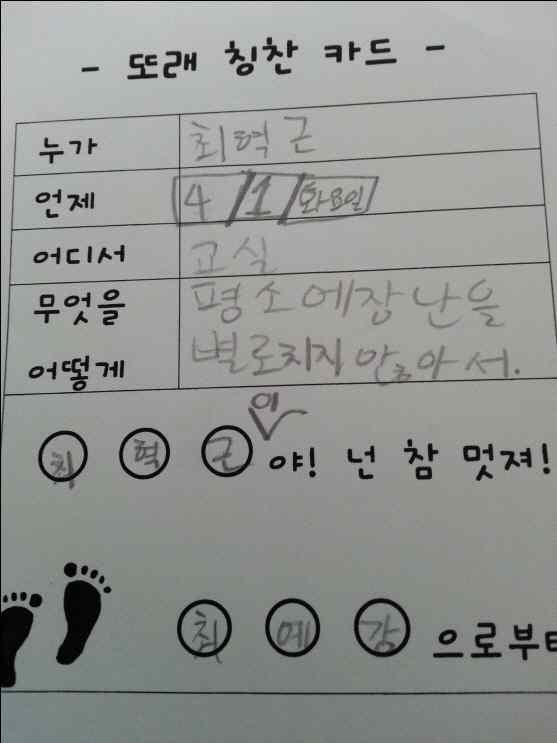 - 또래 칭찬 카드 -
누가 최혁근
언제 4/1/화요일
어디서 교실
무엇을 평소에장난을
어떻게 별로치지안아서.
이
최 혁 근 야! 넌 참 멋져!
최 예 강 으로부터